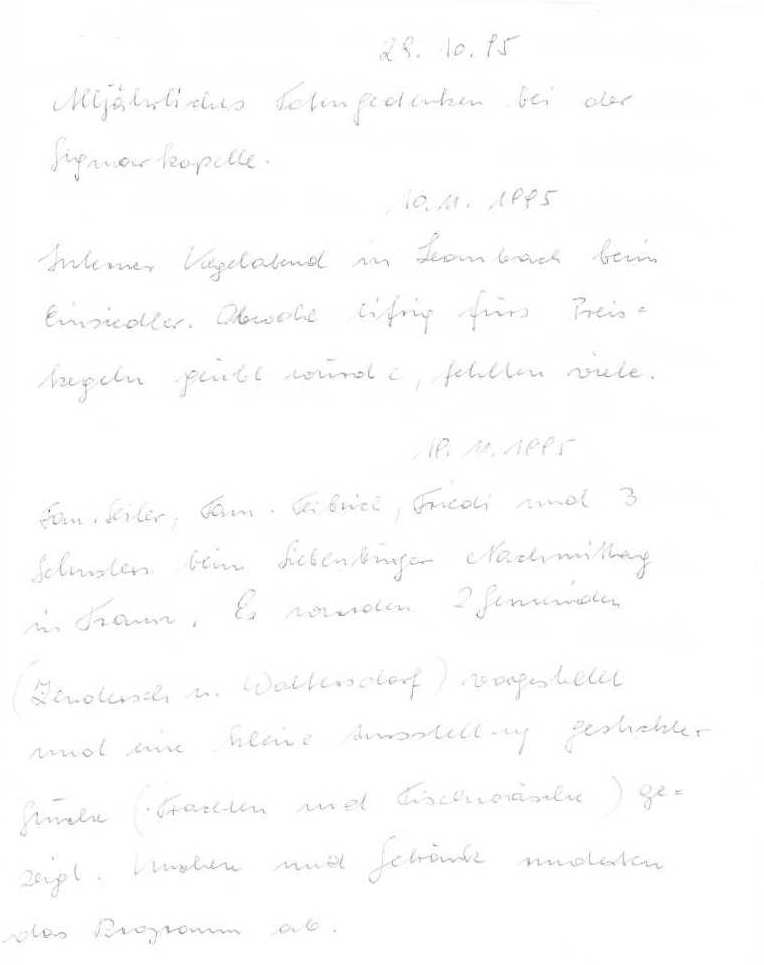 29. 10. 95
Alljährliches Totengedenken bei der
Sigmarkapelle.
10.11. 1995
Interner Kegelabend in Leombach beim
Einsiedler. Obwohl eifrig fürs Preis=
kegeln geübt wurde, fehlten viele.
18. 11. 1995
Fam. Seiler, Fam. Friedi und 3
Schusters beim Siebenbürger Nachmittag
in Traun. Es wurden 2 Gemeinden
(Zendersch u. Waltersdorf) vorgestellt
und eine kleine Ausstellung gestickter
Stücke (Trachten und Tischwäsche) ge=
zeigt. Kuchen und Getränk rundeten
das Programm ab.